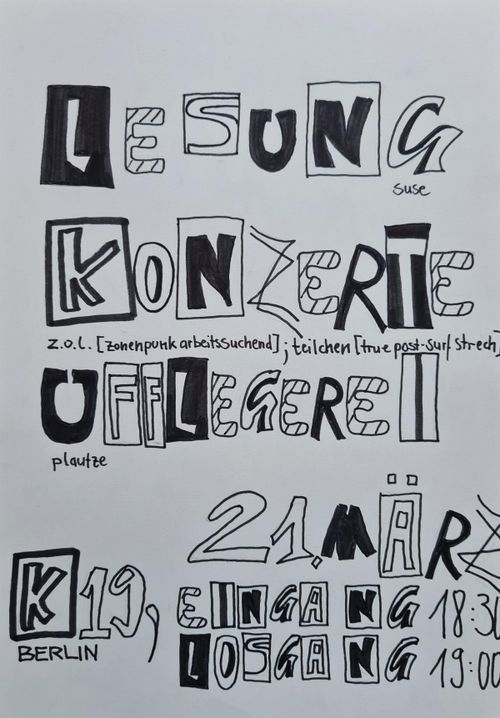 LESUNG
suse
KONZERTE
z.o.l. [zonenpunk arbeitssuchend]; teilchen [true post-surf strech]
UFFLEGEREI
plautze
21. MÄRZ
K19,
BERLIN
EINGANG 18:30
LOSGANG 19:00